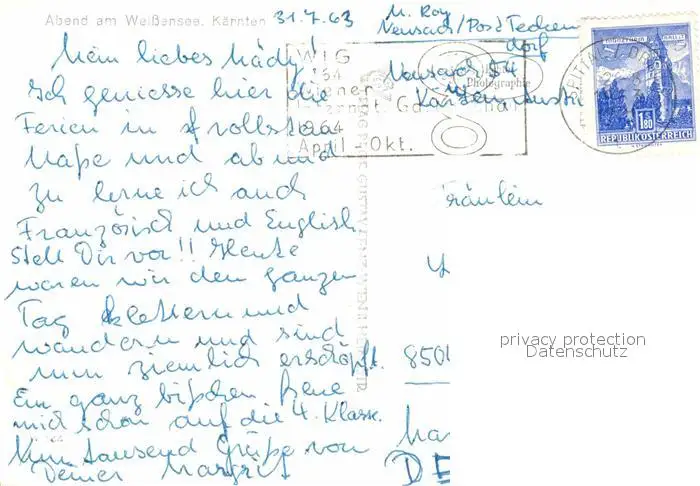 Abend am Weißensee, Kärnten
31.7.63
M. Roy
Neusach/Post Techen
dorf
Neusach 54
Kärnten Austria
Mein liebes Mädy!
Ich geniesse hier die
Ferien in vollstem
Maße und ab und
zu lerne ich auch
Französisch und English
Stell Dir vor!! Heute
waren wir den ganzen
Tag klettern und
wandern und sind
nun ziemlich erschöpft.
Ein ganz bißchen freue
mich schon auf die 4. Klasse.
Nun tausend Grüße von
Deiner Margrit
WIG
1964
April - Okt.
Photographie
1 S 80
REPUBLIK ÖSTERREICH
Fräulein
850
privacy protection
Datenschutz